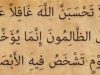 َا تَحْسَبَنَّ اللَّهَ غَافِلًا عَ
الظَّالِمُونَ إِنَّمَا يُؤَخِّ
وْمٍ تَشْخَصُ فِيهِ الْأَبْصَ